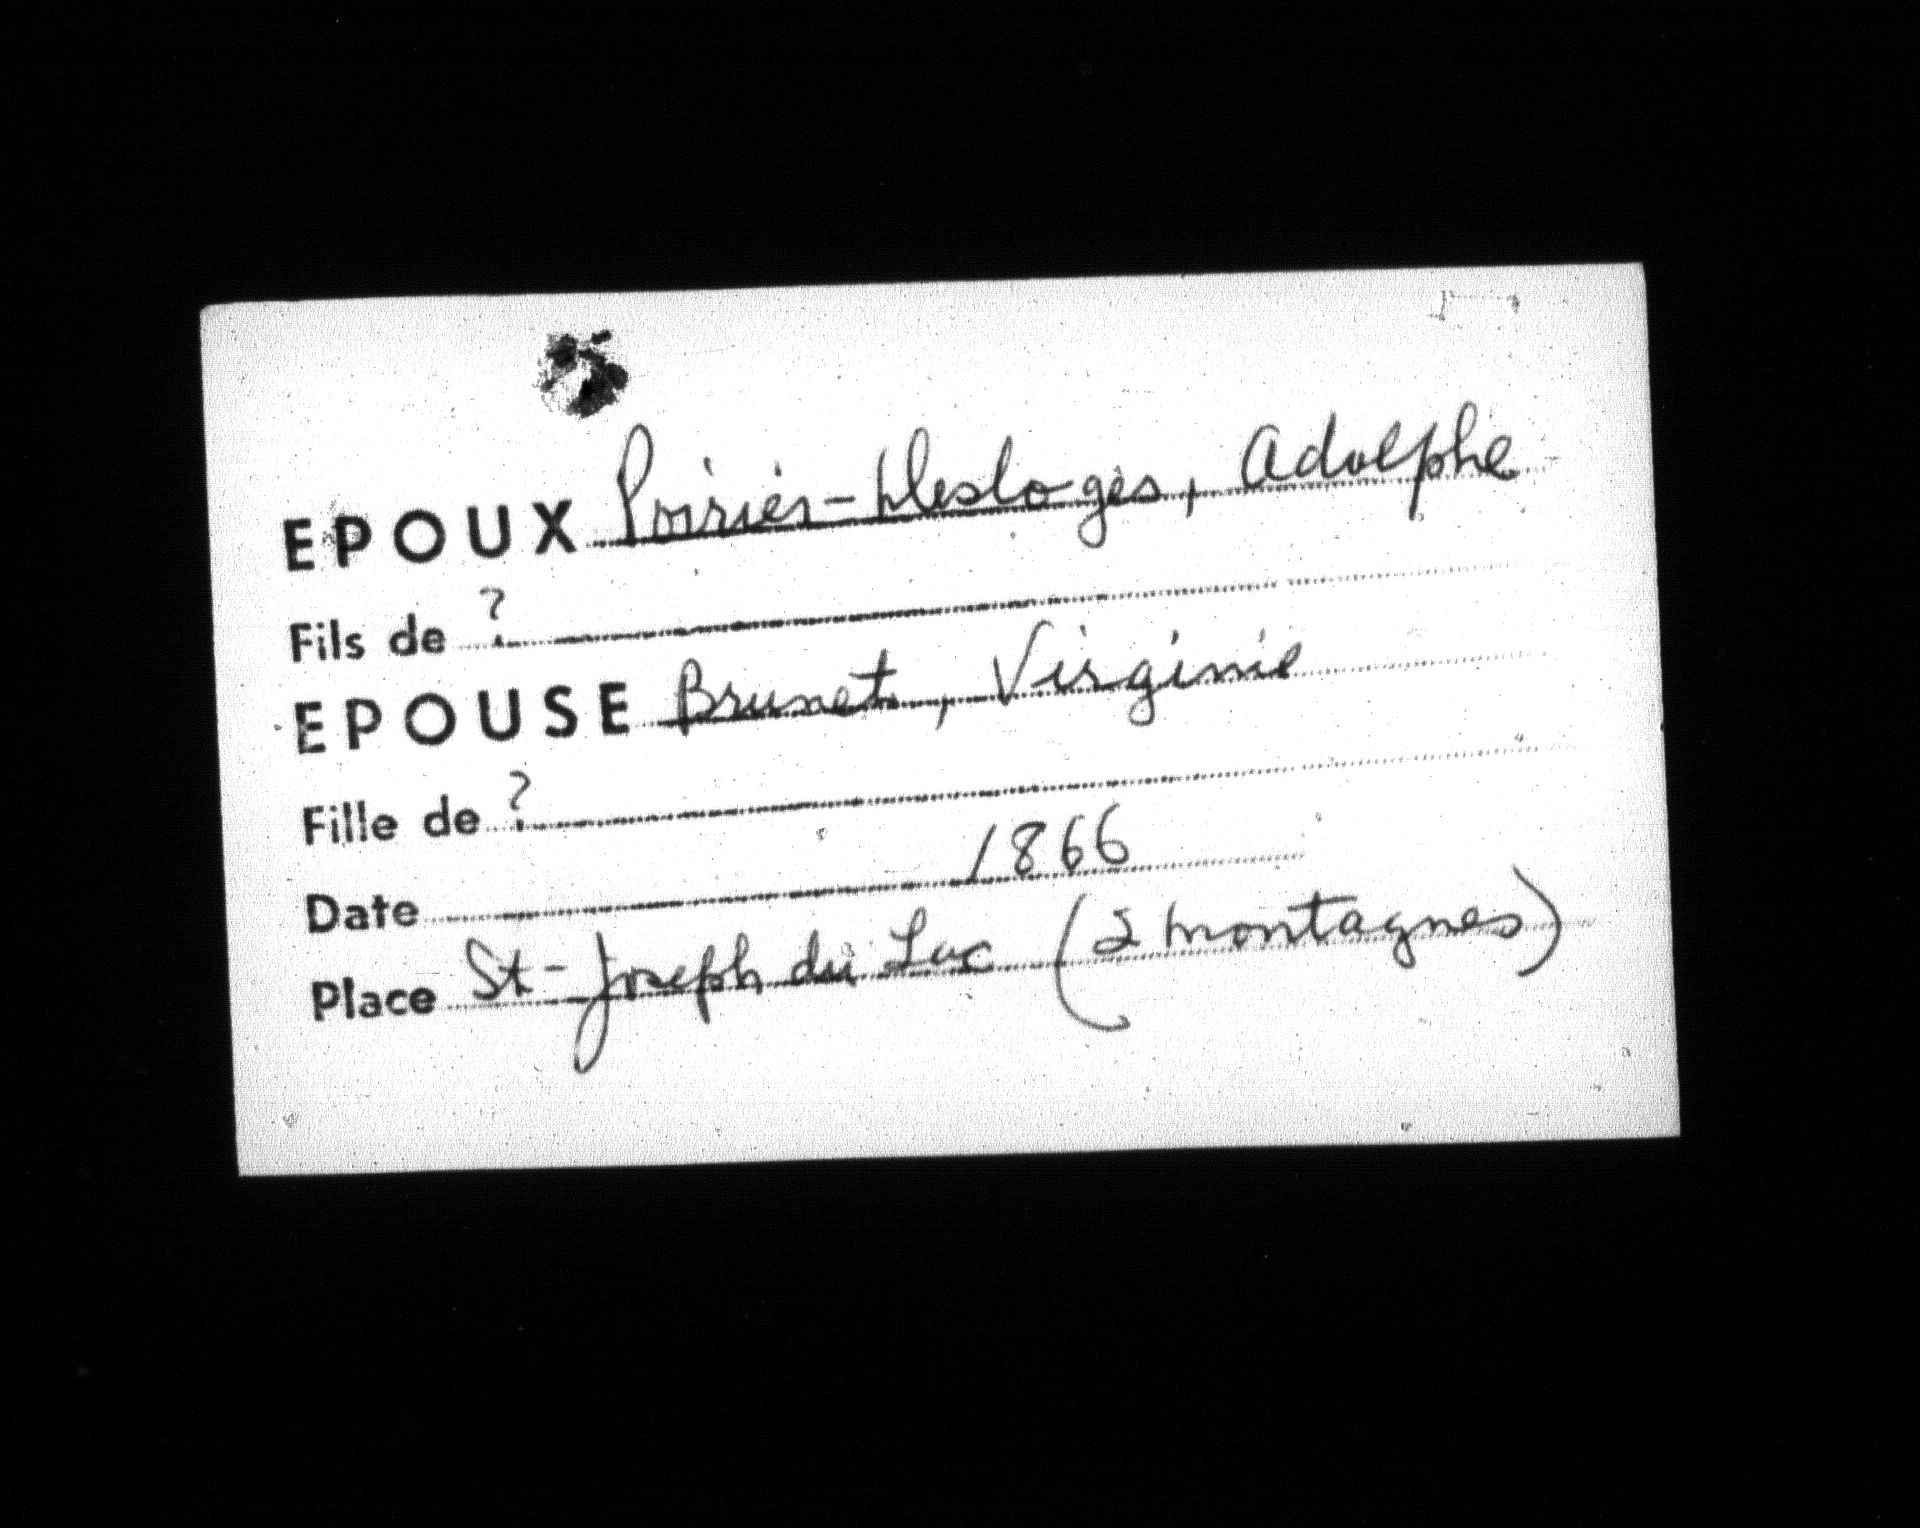 EPOUX Poirier-Desloges, Adolphe
Fils de ?
EPOUSE Brunet, Virginie
Fille de ?
Date 1866
Place St-Joseph du Lac (2 montagnes)